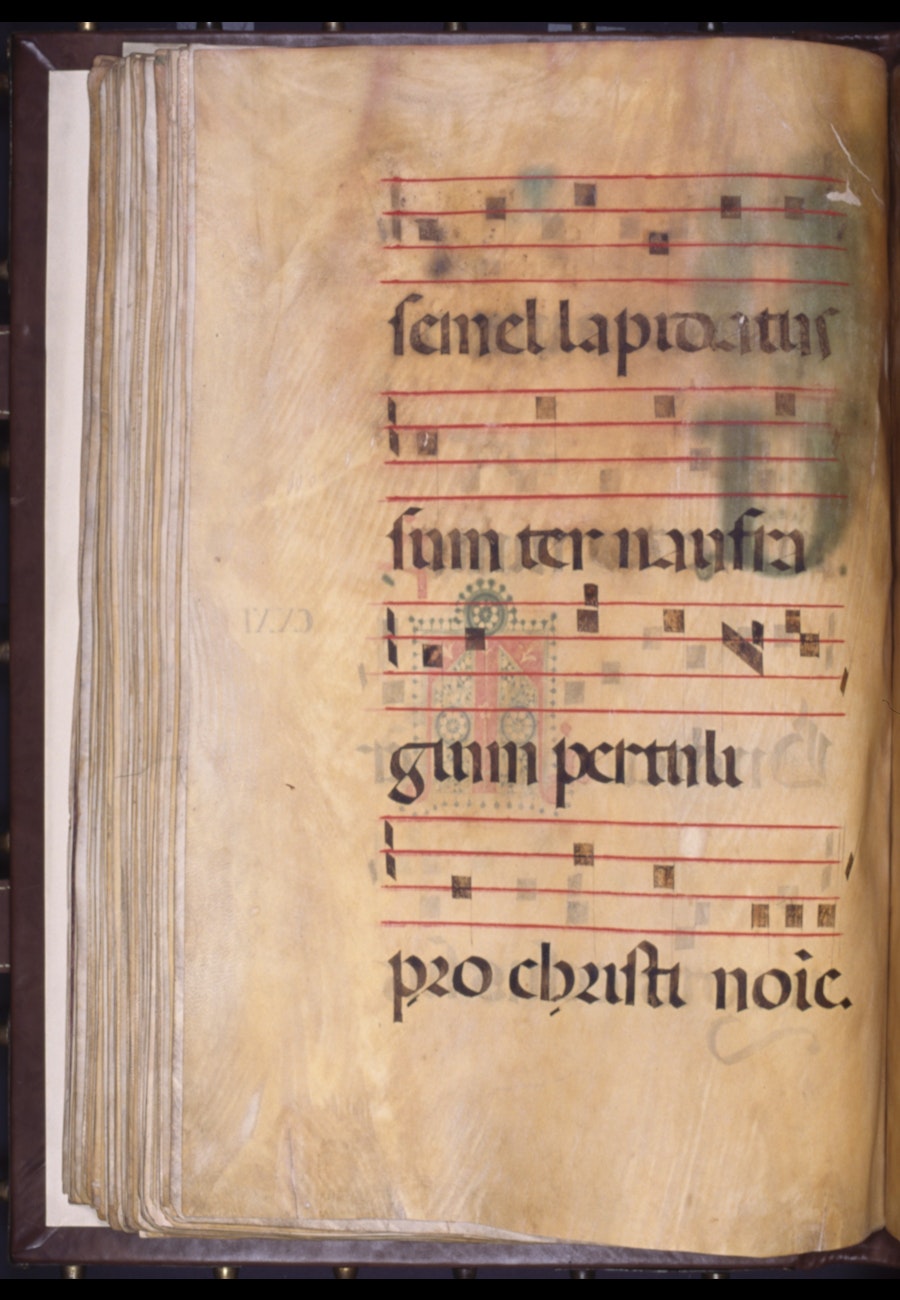 semel lapidatus
sum ter naufra
gium pertuli
pro christi noie.
CXXI